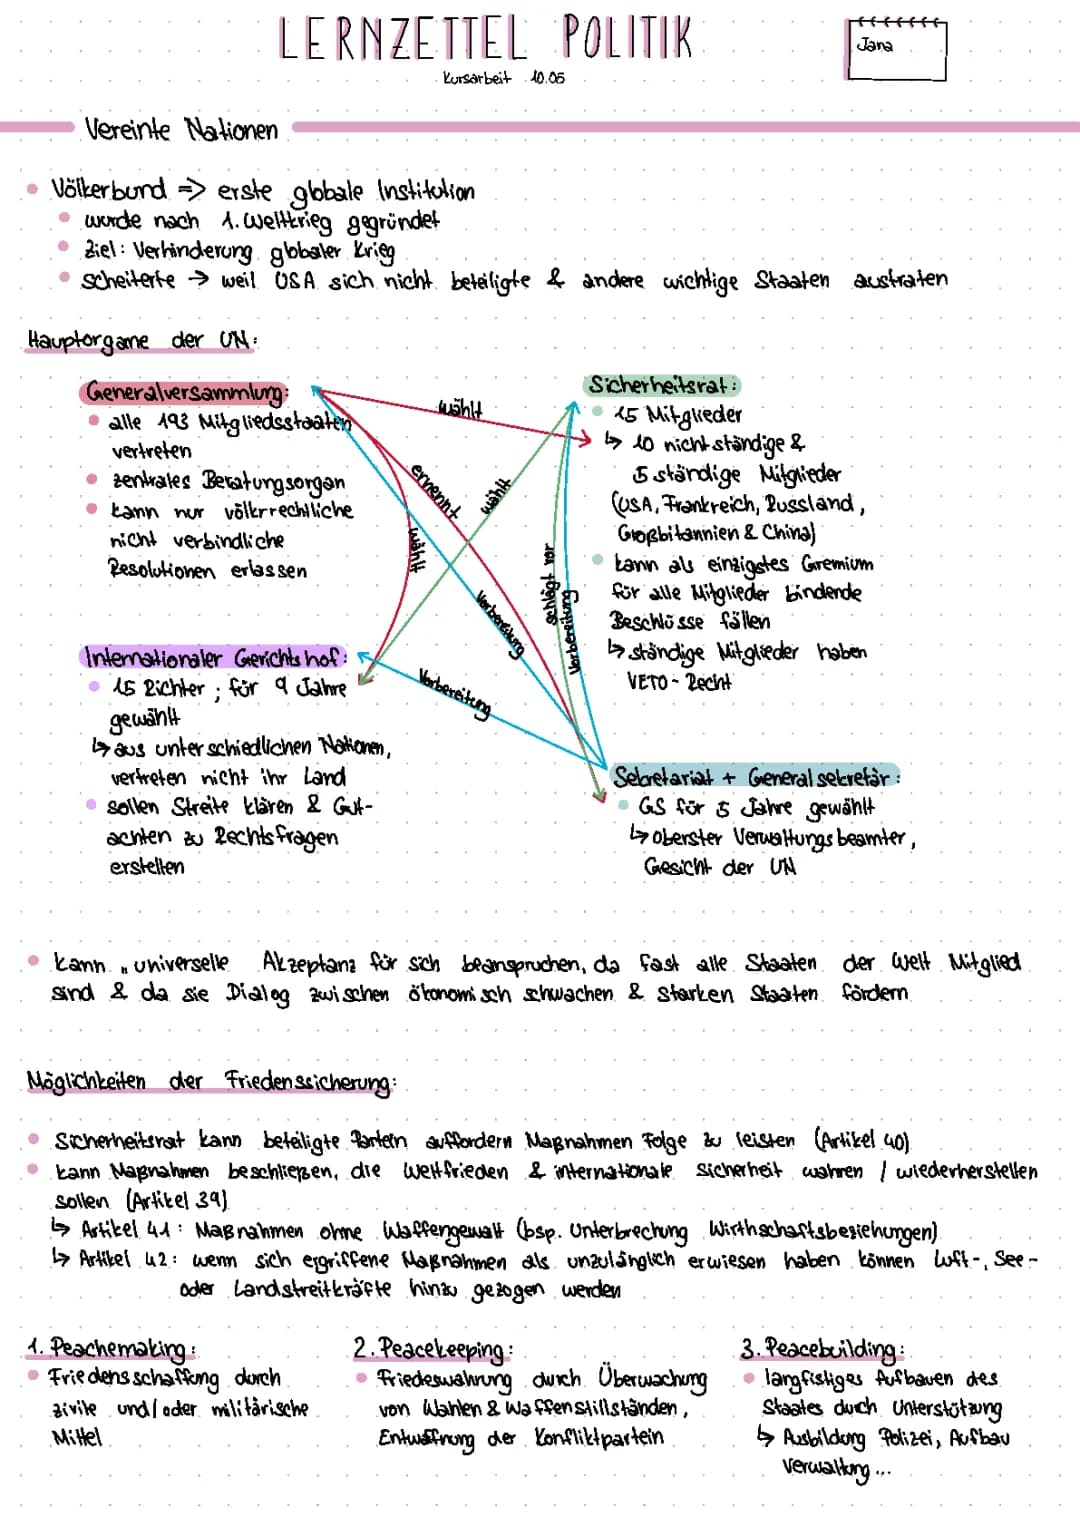 LERNZETTEL POLITIK
Jana
Kursarbeit 10.05
Vereinte Nationen
Völkerbund => erste globale Institution
wurde nach 1. Weltkrieg gegründet
Ziel: Verhinderung globaler Krieg
scheiterte → weil USA sich nicht beteiligte & andere wichtige Staaten austraten
Hauptorgane der UN:
Generalversammlung:
alle 193 Mitgliedsstaaten
vertreten
zentrales Beratungsorgan
kann nur völkrrechtliche
nicht verbindliche
Resolutionen erlassen
wählt
ernennt
wählt
wählt
schlägt vor
Vorbereitung
Vorbereitung
Vorbereitung
Sicherheitsrat:
15 Mitglieder
↳ 10 nicht ständige &
5 ständige Mitglieder
(USA, Frankreich, Russland,
Großbitannien & China)
kann als einzigstes Gremium
für alle Mitglieder bindende
Beschlüsse fällen
↳ ständige Mitglieder haben
VETO-Recht
Internationaler Gerichtshof:
15 Richter; für 9 Jahre
gewählt
↳ aus unterschiedlichen Nationen,
vertreten nicht ihr Land
sollen Streite klären & Gut-
achten zu Rechtsfragen
erstellen
Sekretariat + Generalsekretär:
GS für 5 Jahre gewählt
↳ oberster Verwaltungsbeamter,
Gesicht der UN
kann „universelle Akzeptanz für sich beanspruchen, da fast alle Staaten der Welt Mitglied
sind & da sie Dialog zwischen ökonomisch schwachen & starken Staaten fördern
Möglichkeiten der Friedenssicherung:
Sicherheitsrat kann beteiligte Partein auffordern Maßnahmen Folge zu leisten (Artikel 40)
kann Maßnahmen beschließen, die Weltfrieden & internationale Sicherheit wahren / wiederherstellen
sollen (Artikel 39)
↳ Artikel 41: Maßnahmen ohne Waffengewalt (bsp. Unterbrechung Wirthschaftsbeziehungen)
↳ Artikel 42: wenn sich ergriffene Maßnahmen als unzulänglich erwiesen haben können Luft-, See-
oder Landstreitkräfte hinzu gezogen werden
1. Peachemaking:
Friedensschaffung durch
zivile und/oder militärische
Mittel
2. Peacekeeping:
Friedeswahrung durch Überwachung
von Wahlen & Waffenstillständen,
Entwaffnung der Konfliktpartein
3. Peacebuilding:
langfistiges Aufbauen des
Staates durch Unterstützung
↳ Ausbildung Polizei, Aufbau
Verwaltung...